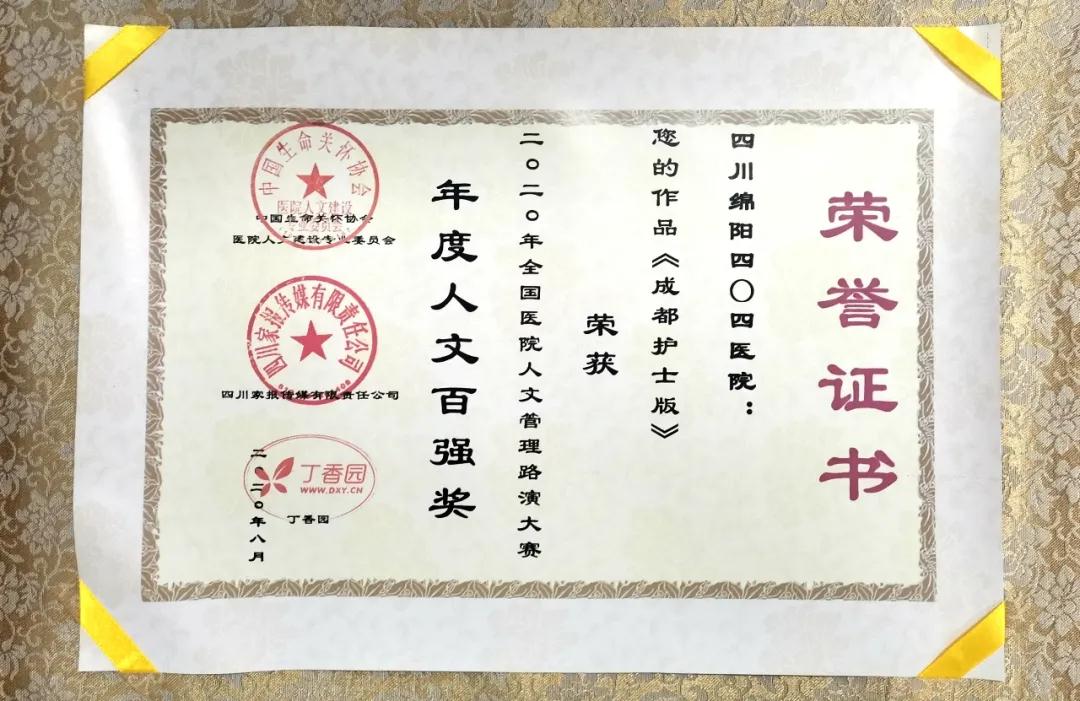 荣誉证书
四川绵阳四〇四医院：
您的作品《成都护士版》
荣获
二〇二〇年全国医院人文管理路演大赛
年度人文百强奖
中国生命关怀协会
医院人文建设
专业委员会
中国生命关怀协会
医院人文建设专业委员会
四川家报传媒有限责任公司
四川家报传媒有限责任公司
丁香园
WWW.DXY.CN
丁香园
二〇二〇年八月